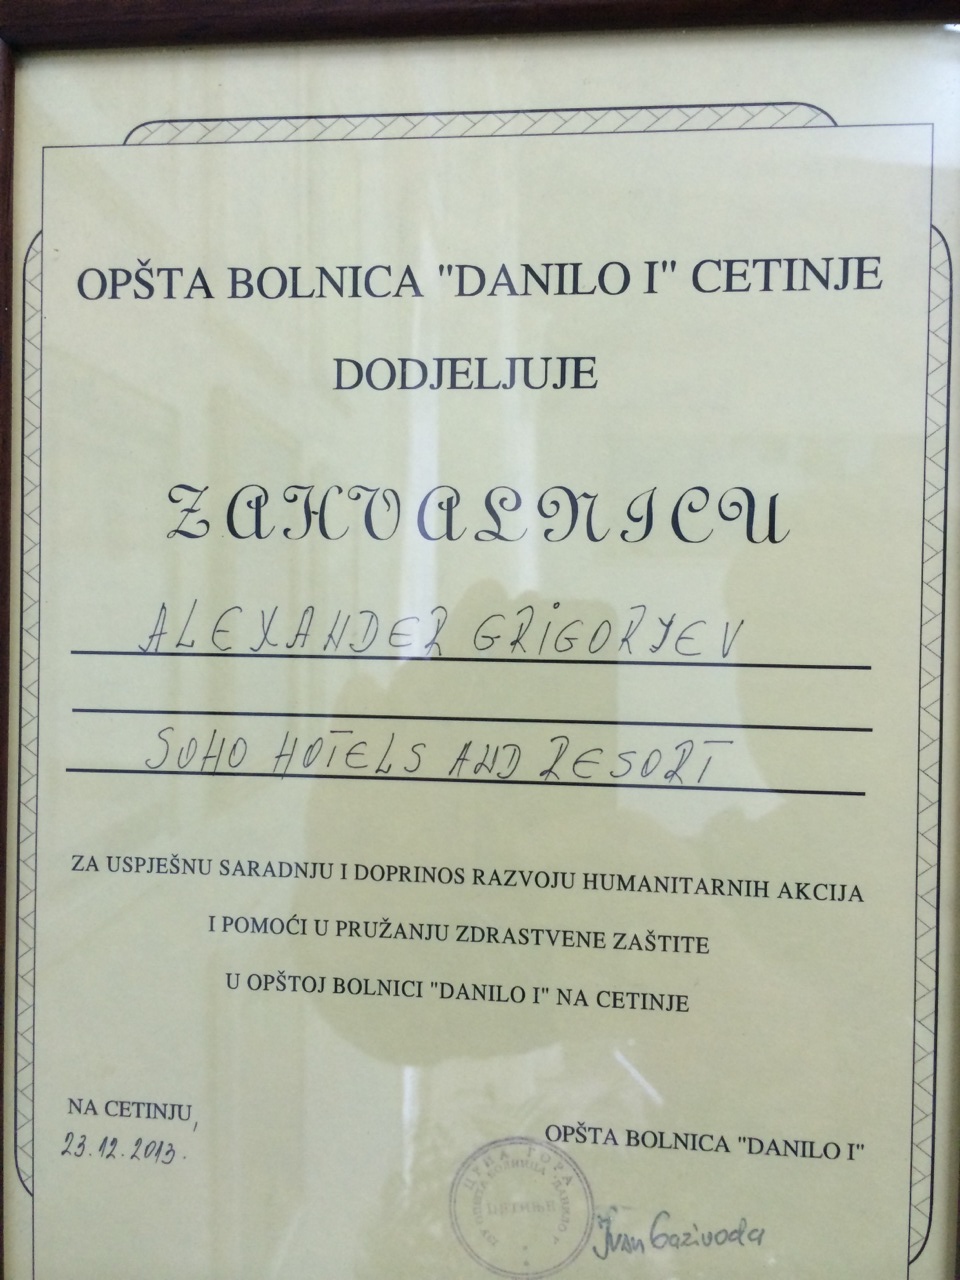 OPŠTA BOLNICA "DANILO I" CETINJE
DODJELJUJE
ZAHVALNICU
ALEXANDER GRIGORYEV
SOHO HOTELS AND RESORT
ZA USPJEŠNU SARADNJU I DOPRINOS RAZVOJU HUMANITARNIH AKCIJA
I POMOĆI U PRUŽANJU ZDRASTVENE ZAŠTITE
U OPŠTOJ BOLNICI "DANILO I" NA CETINJE
NA CETINJU,
23.12.2013.
OPŠTA BOLNICA "DANILO I"
ЦРНА ГОРА
ОПШТА БОЛНИЦА "ДАНИЛО I"
ЦЕТИЊЕ
Ivan Gazivoda